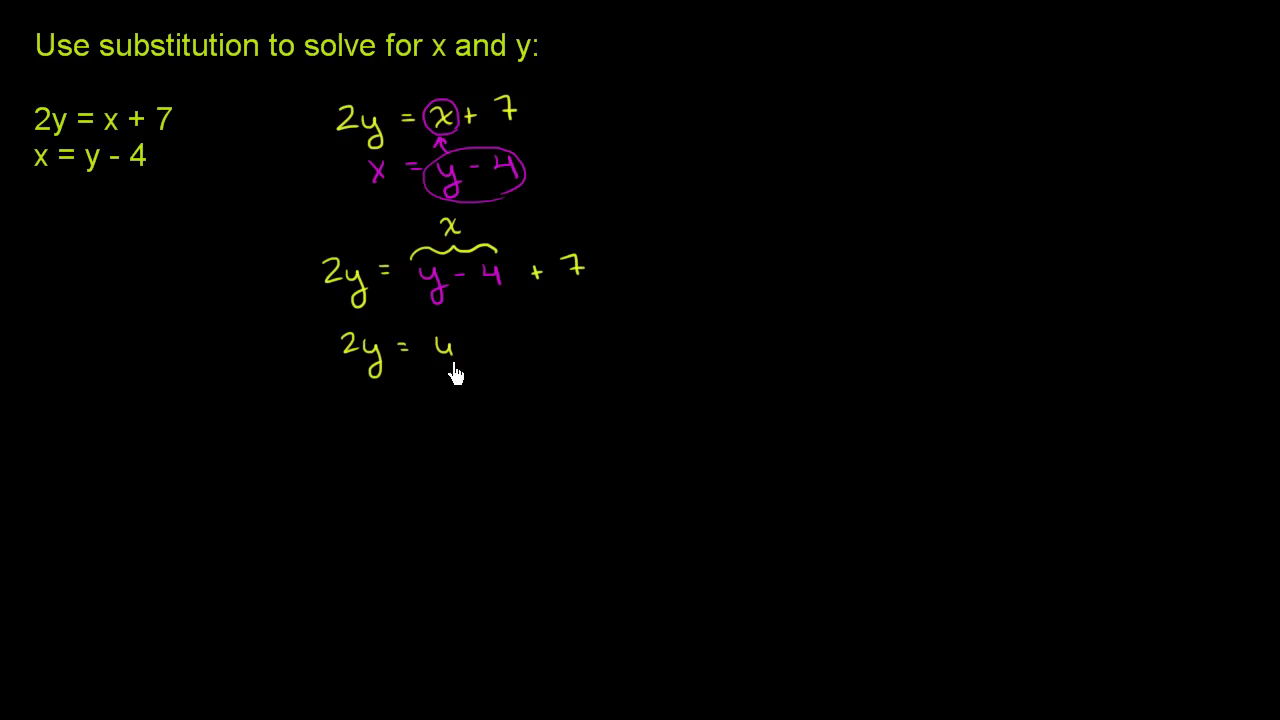 Use substitution to solve for x and y:
2y = x + 7
x = y - 4
2y = x + 7
x = y - 4
x
2y = y - 4 + 7
2y =